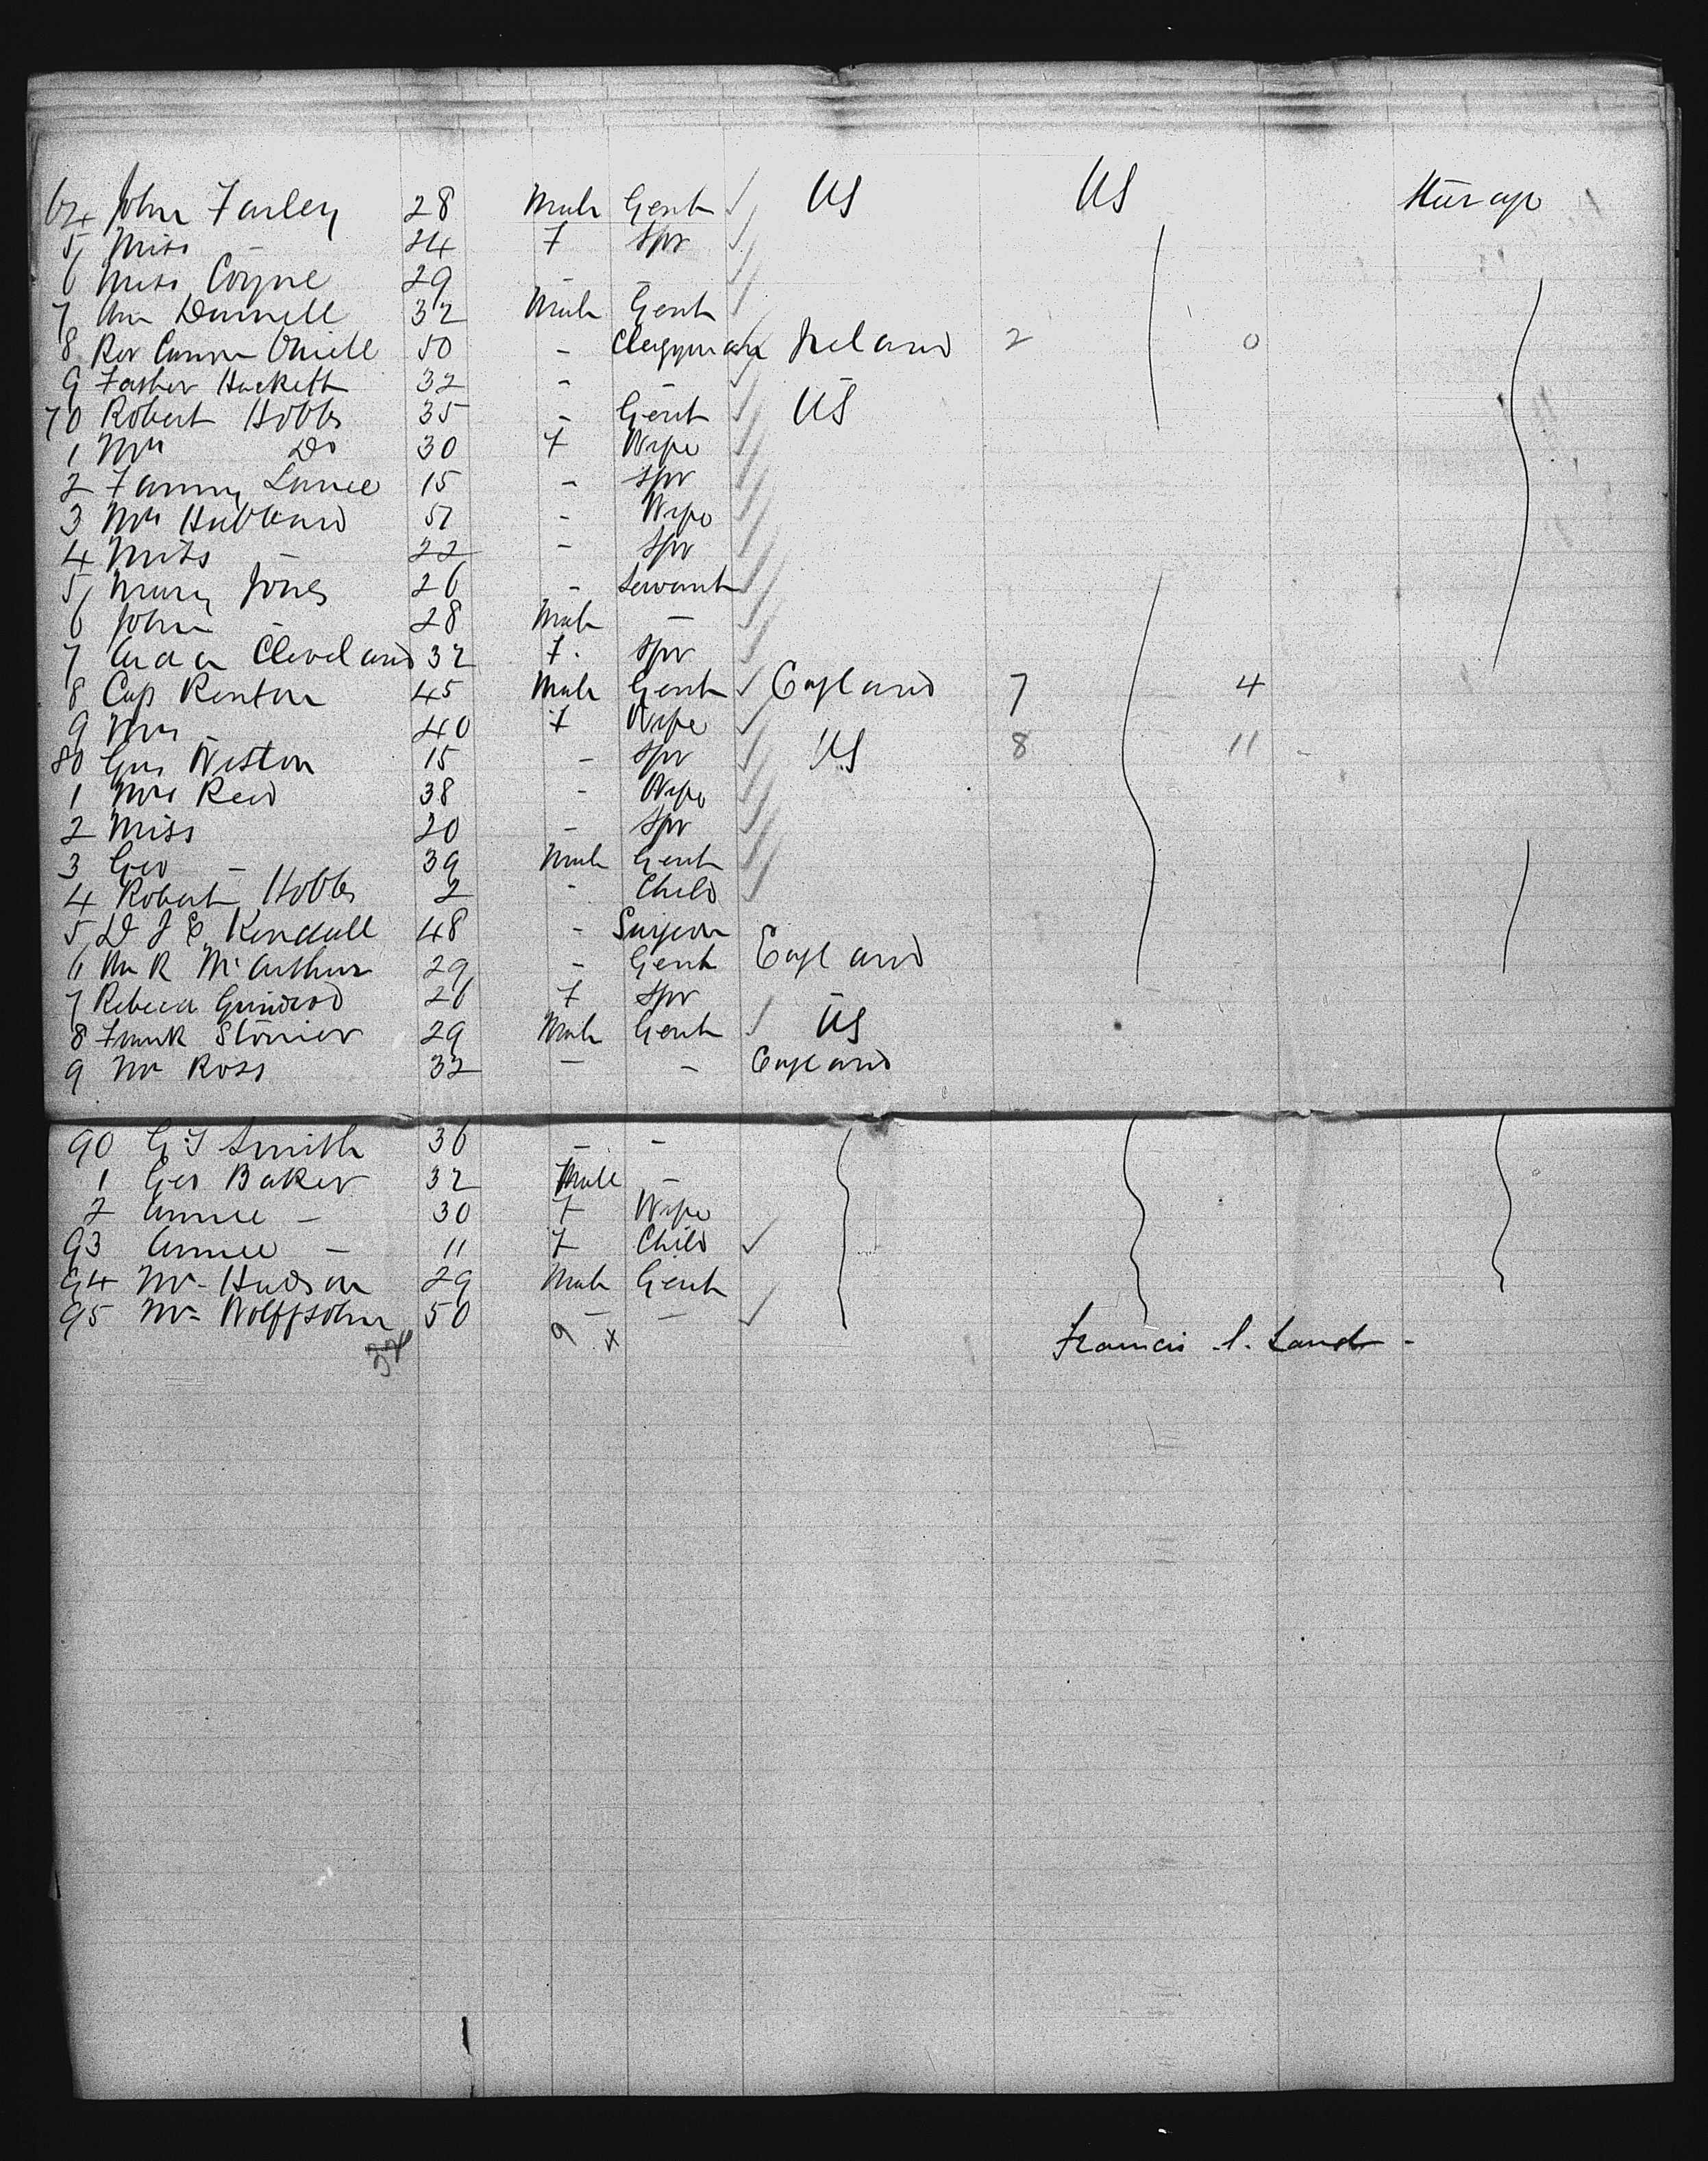 64 John Farley 28 Male Gent US US Steerage
5 Miss - 24 F Spr
6 Miss Coyne 29 - -
7 Mr Dunnell 32 Male Gent
8 Rev Canon ONiell 50 - Clergyman Ireland 2 0
9 Father Hackett 32 - -
70 Robert Hobbs 35 - Gent US
1 Mrs Do 30 F Wife
2 Fanny 15 - Spr
3 Mrs Hubbard 51 - Wife
4 Miss - 22 - Spr
5 Mary Jones 26 - Servant
6 John - 28 Male -
7 Cleveland 32 F. Spr
8 Cap Renton 45 Male Gent England 7 4
9 Mrs - 40 F Wife
80 Weston 15 - Spr US 8 11 -
1 Mrs Reid 38 - Wife
2 Miss 20 - Spr
3 Geo - 39 Male Gent
4 Robert Hobbs 2 - Child
5 D J E Kendall 48 - Surgeon
6 Mr R McArthur 29 - Gent England
7 Rebecca 26 F Spr
8 Frank Stonier 29 Male Gent US
9 Mr Ross 32 - - England
90 G S Smith 36 - -
1 Geo Baker 32 Male -
2 Annie - 30 F Wife
93 Annie - 11 F Child
94 Mr Hudson 29 Male Gent
95 Mr Wolffsohn 50 - -
9 x
Francis S. Land -